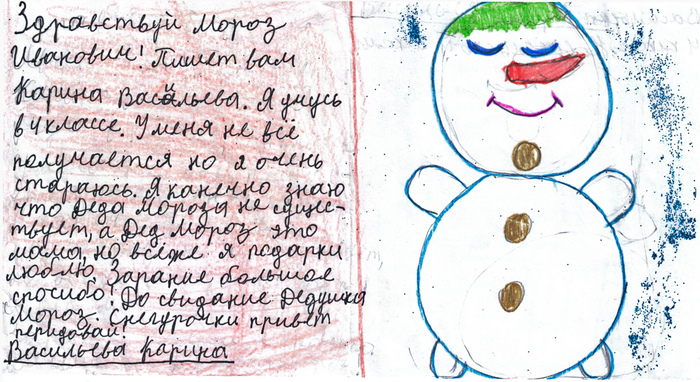 Здравствуй Мороз
Иванович! Пишет вам
Карина Васильева. Я учусь
в 4 классе. У меня не все
получается но я очень
стараюсь. Я канечно знаю
что Деда Мороза не сущес-
твует, а Дед Мороз это
мама, но всёже я подарки
люблю. Зарание большое
спосибо! До свидание Дедушка
Мороз. Снегурочки привет
перидовай!
Васильева Карина